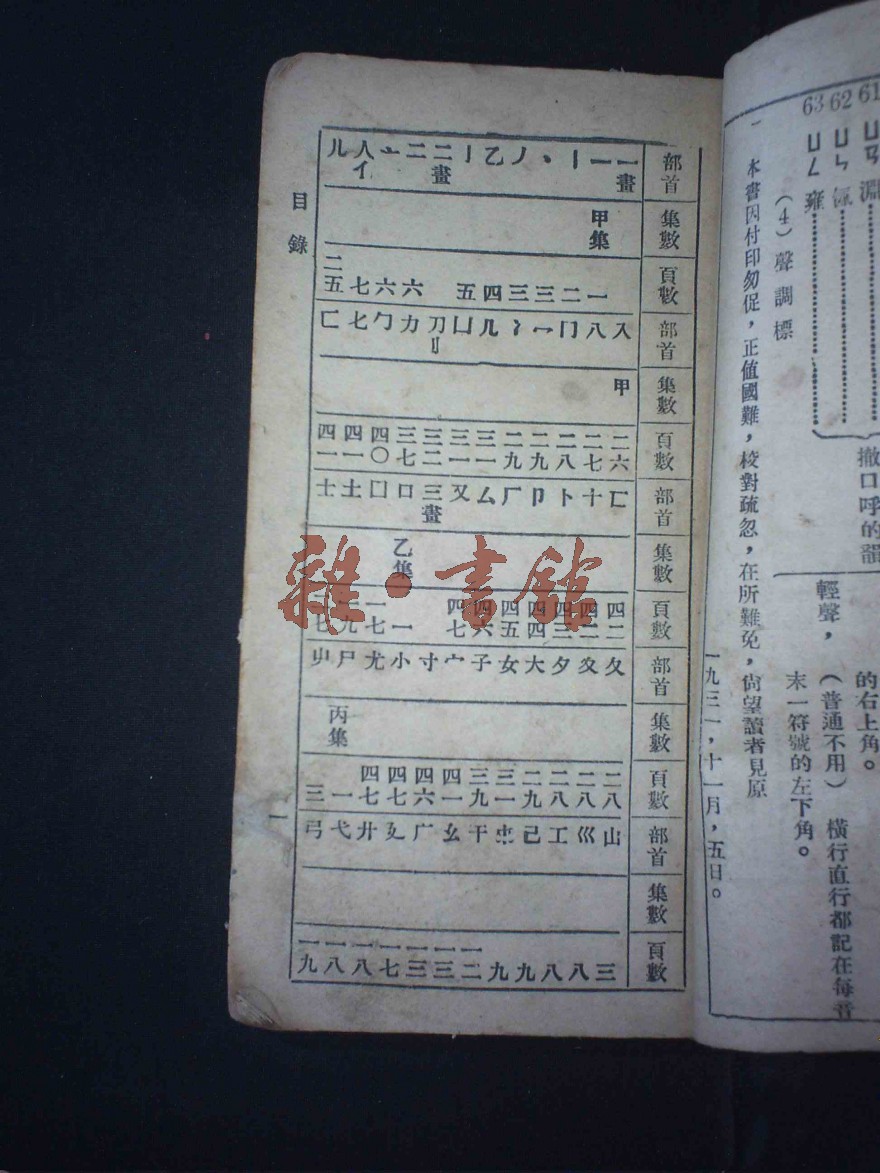 61 ㄩㄢ 淵
62 ㄩㄣ
63 ㄩㄥ 雍
撤口呼的韻
(4)聲調標
的右上角。
輕聲，(普通不用) 橫行直行都記在每音
末一符號的左下角。
一 本書因付印匆促，正值國難，校對疏忽，在所難免，尚望讀者見原
一九三一，十一月，五日。
部首 一畫 一 丨 丶 丿 乙 亅 二畫 二 亠 人亻 儿
集數 甲集
頁數 一 二 三 三 四 五 六 六 七 二五
部首 入 八 冂 冖 冫 几 凵 刀刂 力 勹 匕 匚
集數 甲
頁數 二六 二七 二八 二九 二九 三一 三一 三二 三七 四〇 四一 四一
部首 匸 十 卜 卩 厂 厶 又 三畫 口 囗 土 士
集數 乙集
頁數 四二 四二 四三 四四 四五 四六 四七 一 一七
部首 夂 夊 夕 大 女 子 宀 寸 小 尢 尸 屮
集數 丙集
頁數 二八 二八 二八 二九 三一 三九 四一 四六 四七 四七 一 三
部首 山 巛 工 己 巾 干 幺 广 廴 廾 弋 弓
集數
頁數 三 八 八 九 九 一二 一三 一三 一七 一八 一八 一九
目錄
一
雜·書館